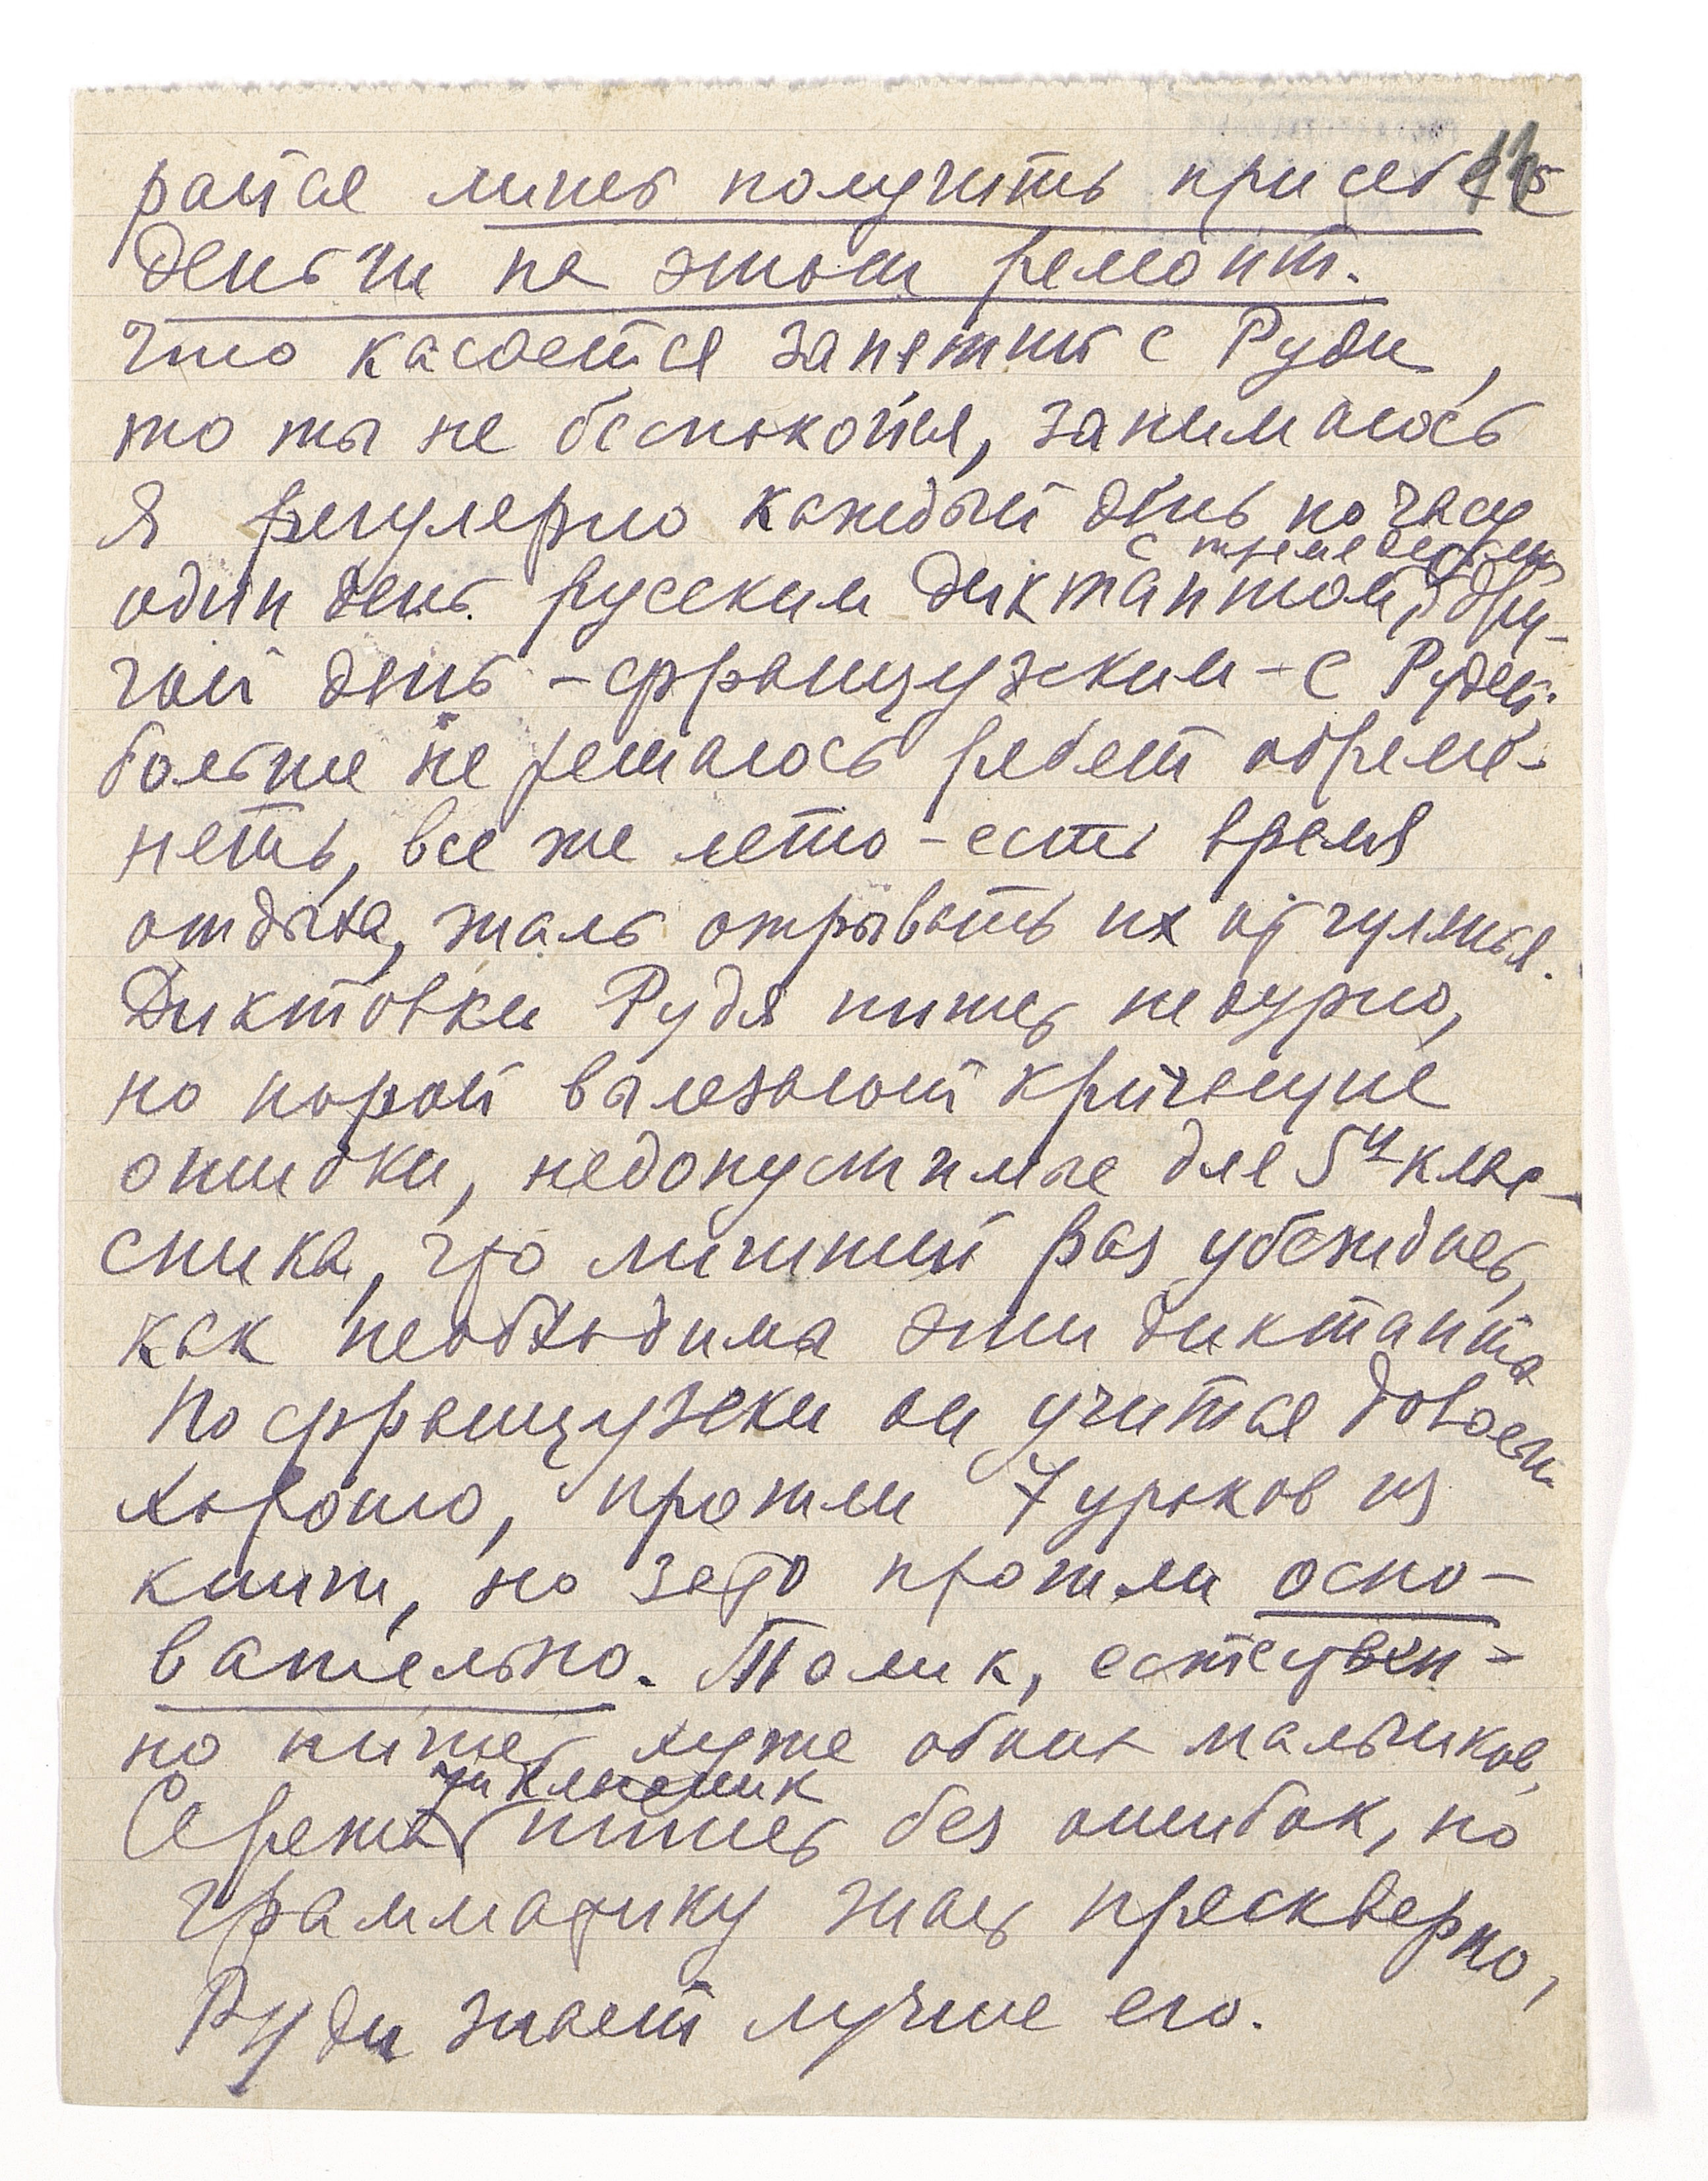 райся лишь получить при себе
деньги на этот ремонт.
Что касается занятий с Руди,
то ты не беспокойся, занимаюсь
я регулярно каждый день по часу
с тремя детьми
один день русским диктантом, дру-
гой день - французским - с Рудей,
больше не решаюсь ребят обреме-
нять, все же лето - есть время
отдыха, жаль отрывать их от гулянья.
Диктовки Рудя пишет недурно,
но порой вылезают кричащие
ошибки, недопустимые для 5и-клас-
сника, что лишний раз убеждает,
как необходимы эти диктанты
По французски он учится довольн
хорошо, прошли 7 уроков из
книги, но зато прошли осно-
вательно. Толик, естествен-
но пишет хуже обоих мальчиков,
Сережа пишет без ошибок, но
грамматику знает прескверно,
Руди знает лучше его.